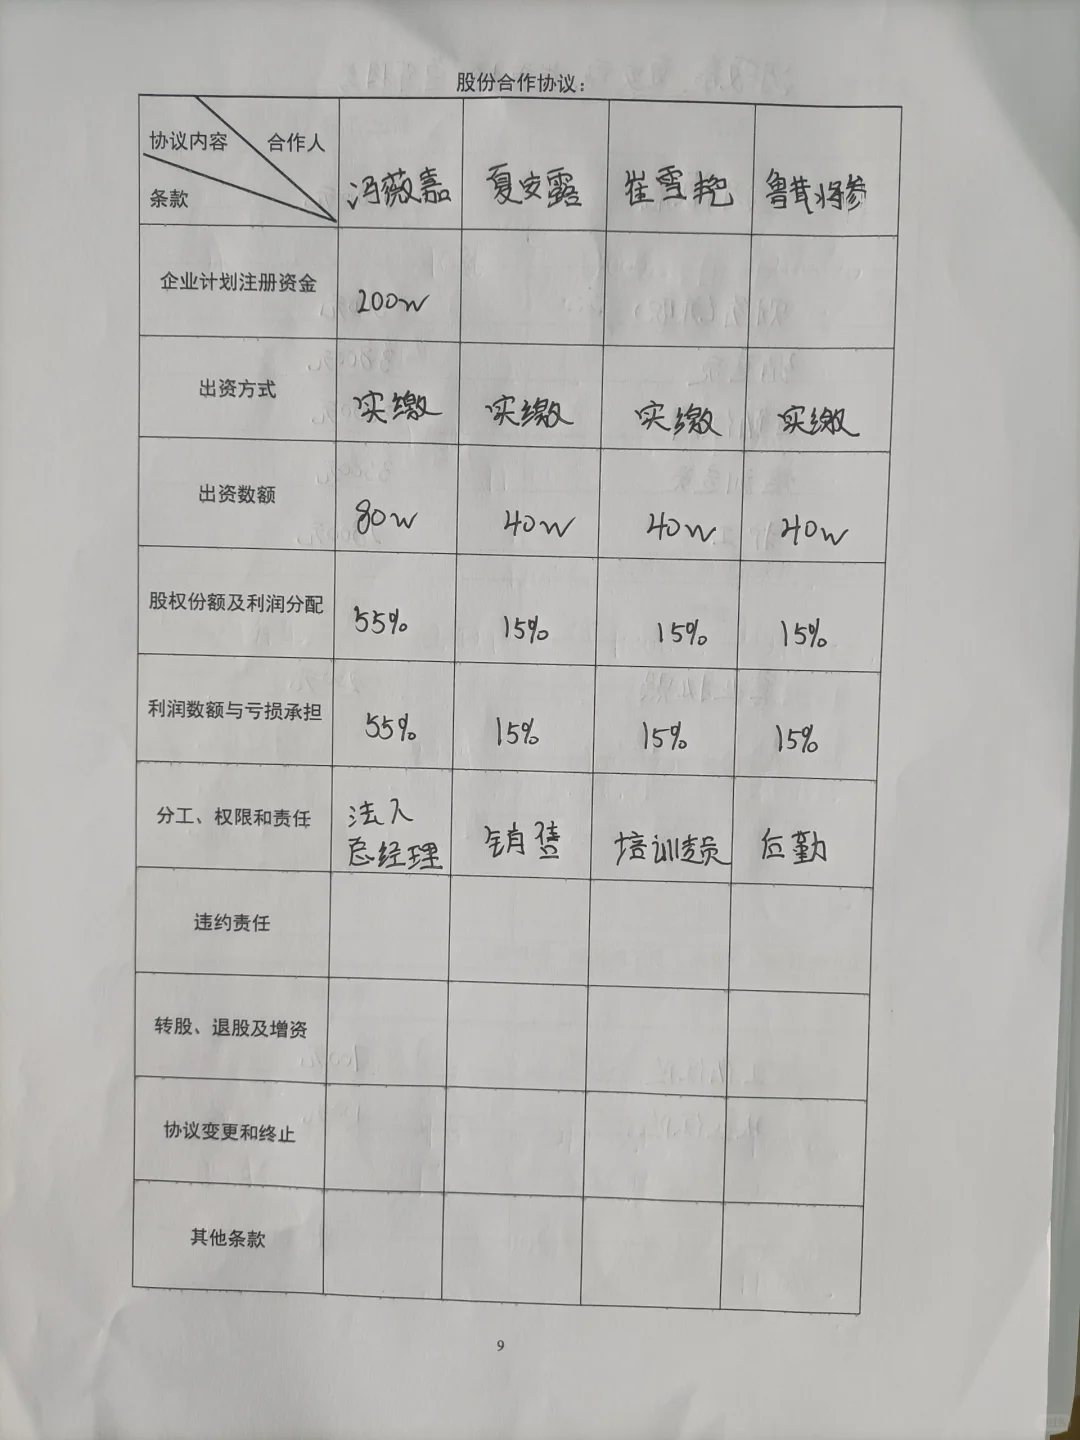 股份合作协议：
协议内容 合作人
条款
冯薇嘉 夏安露 崔雪艳 鲁茸将参
企业计划注册资金 200w
出资方式 实缴 实缴 实缴 实缴
出资数额 80w 40w 40w 40w
股权份额及利润分配 55% 15% 15% 15%
利润数额与亏损承担 55% 15% 15% 15%
分工、权限和责任 法人 总经理 销售 培训专员 后勤
违约责任
转股、退股及增资
协议变更和终止
其他条款
9